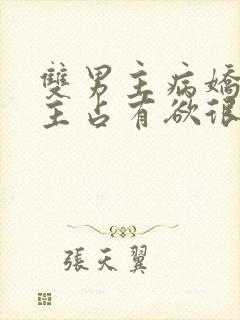 雙男主病嬌
主占有欲很
張天翼